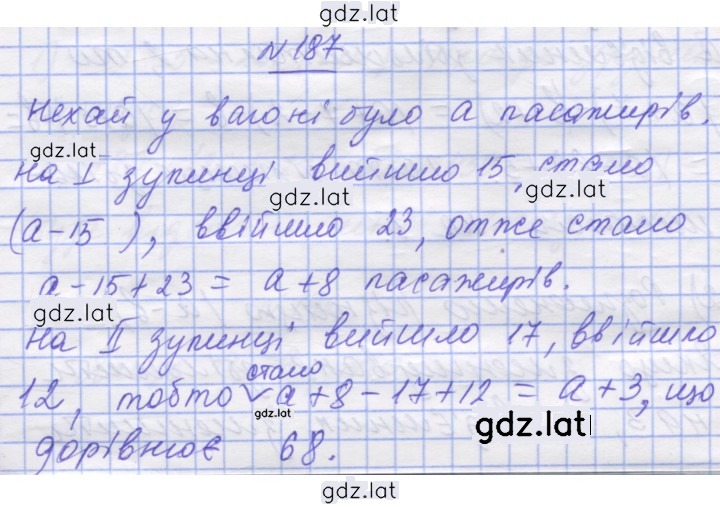 gdz.lat
N187
Нехай у вагоні було a пасажирів.
gdz.lat
На I зупинці вийшло 15, стало
gdz.lat gdz.lat
(a-15), ввійшло 23, отже стало
a-15+23 = a+8 пасажирів.
gdz.lat
На II зупинці вийшло 17, ввійшло
стало
12, тобто a+8-17+12 = a+3, що
gdz.lat gdz.lat
дорівнює 68.
gdz.lat